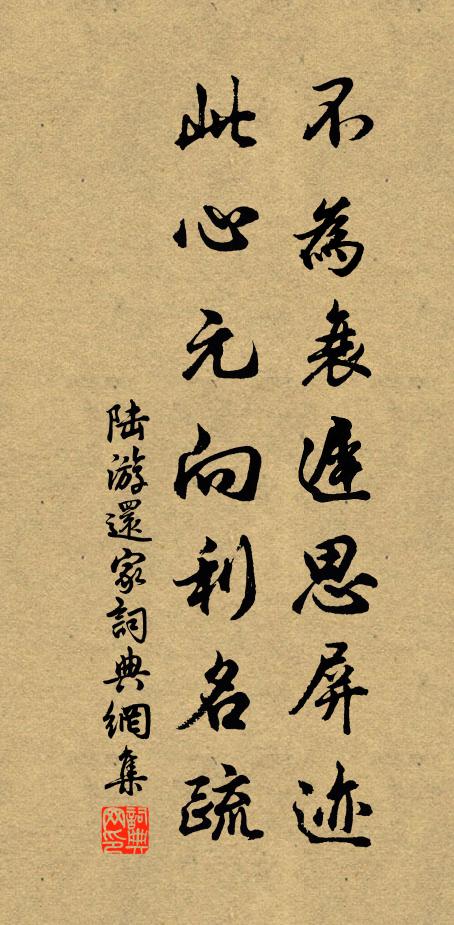 不為衰遲思屏迹
此心元向利名疏
陆游還家詞典網集
詞典網印